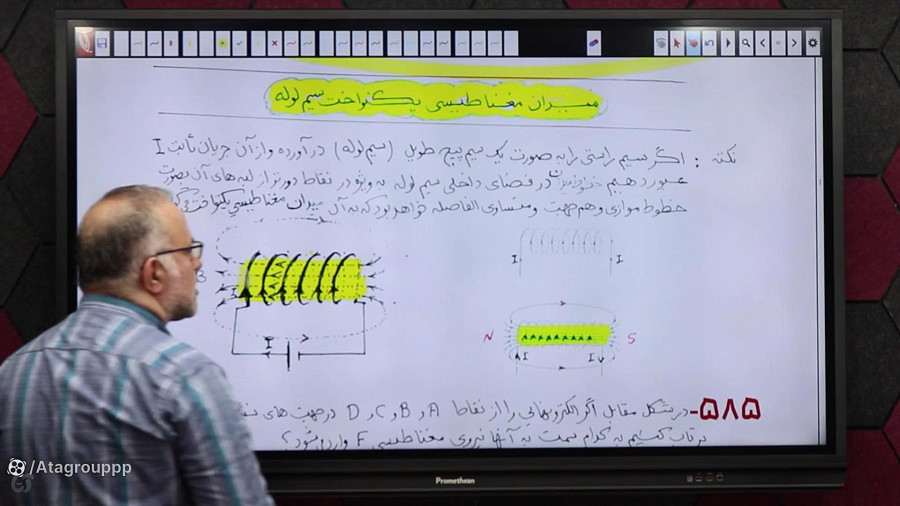 میدان مغناطیسی یکنواخت سیم لوله
نکته : اگر سیم راستی را به صورت یک سیم پیچ طویل (سیم لوله) در آورده و از آن جریان ثابت I
عبور دهیم خطوط میدان در فضای داخلی سیم لوله به ویژه در نقاط دورتر از لبه های آن بصورت
خطوط موازی و هم جهت و متساوی الفاصله خواهد بود که به آن میدان مغناطیسی یکنواخت
B
I
I
I
N
S
I
I
۵۸۵- در شکل مقابل اگر الکترونهایی را از نقاط A و B و C و D در جهت های
پرتاب کنیم به کدام سمت به آنها نیروی مغناطیسی F وارد میشود؟
Promethean
/Atagrouppp